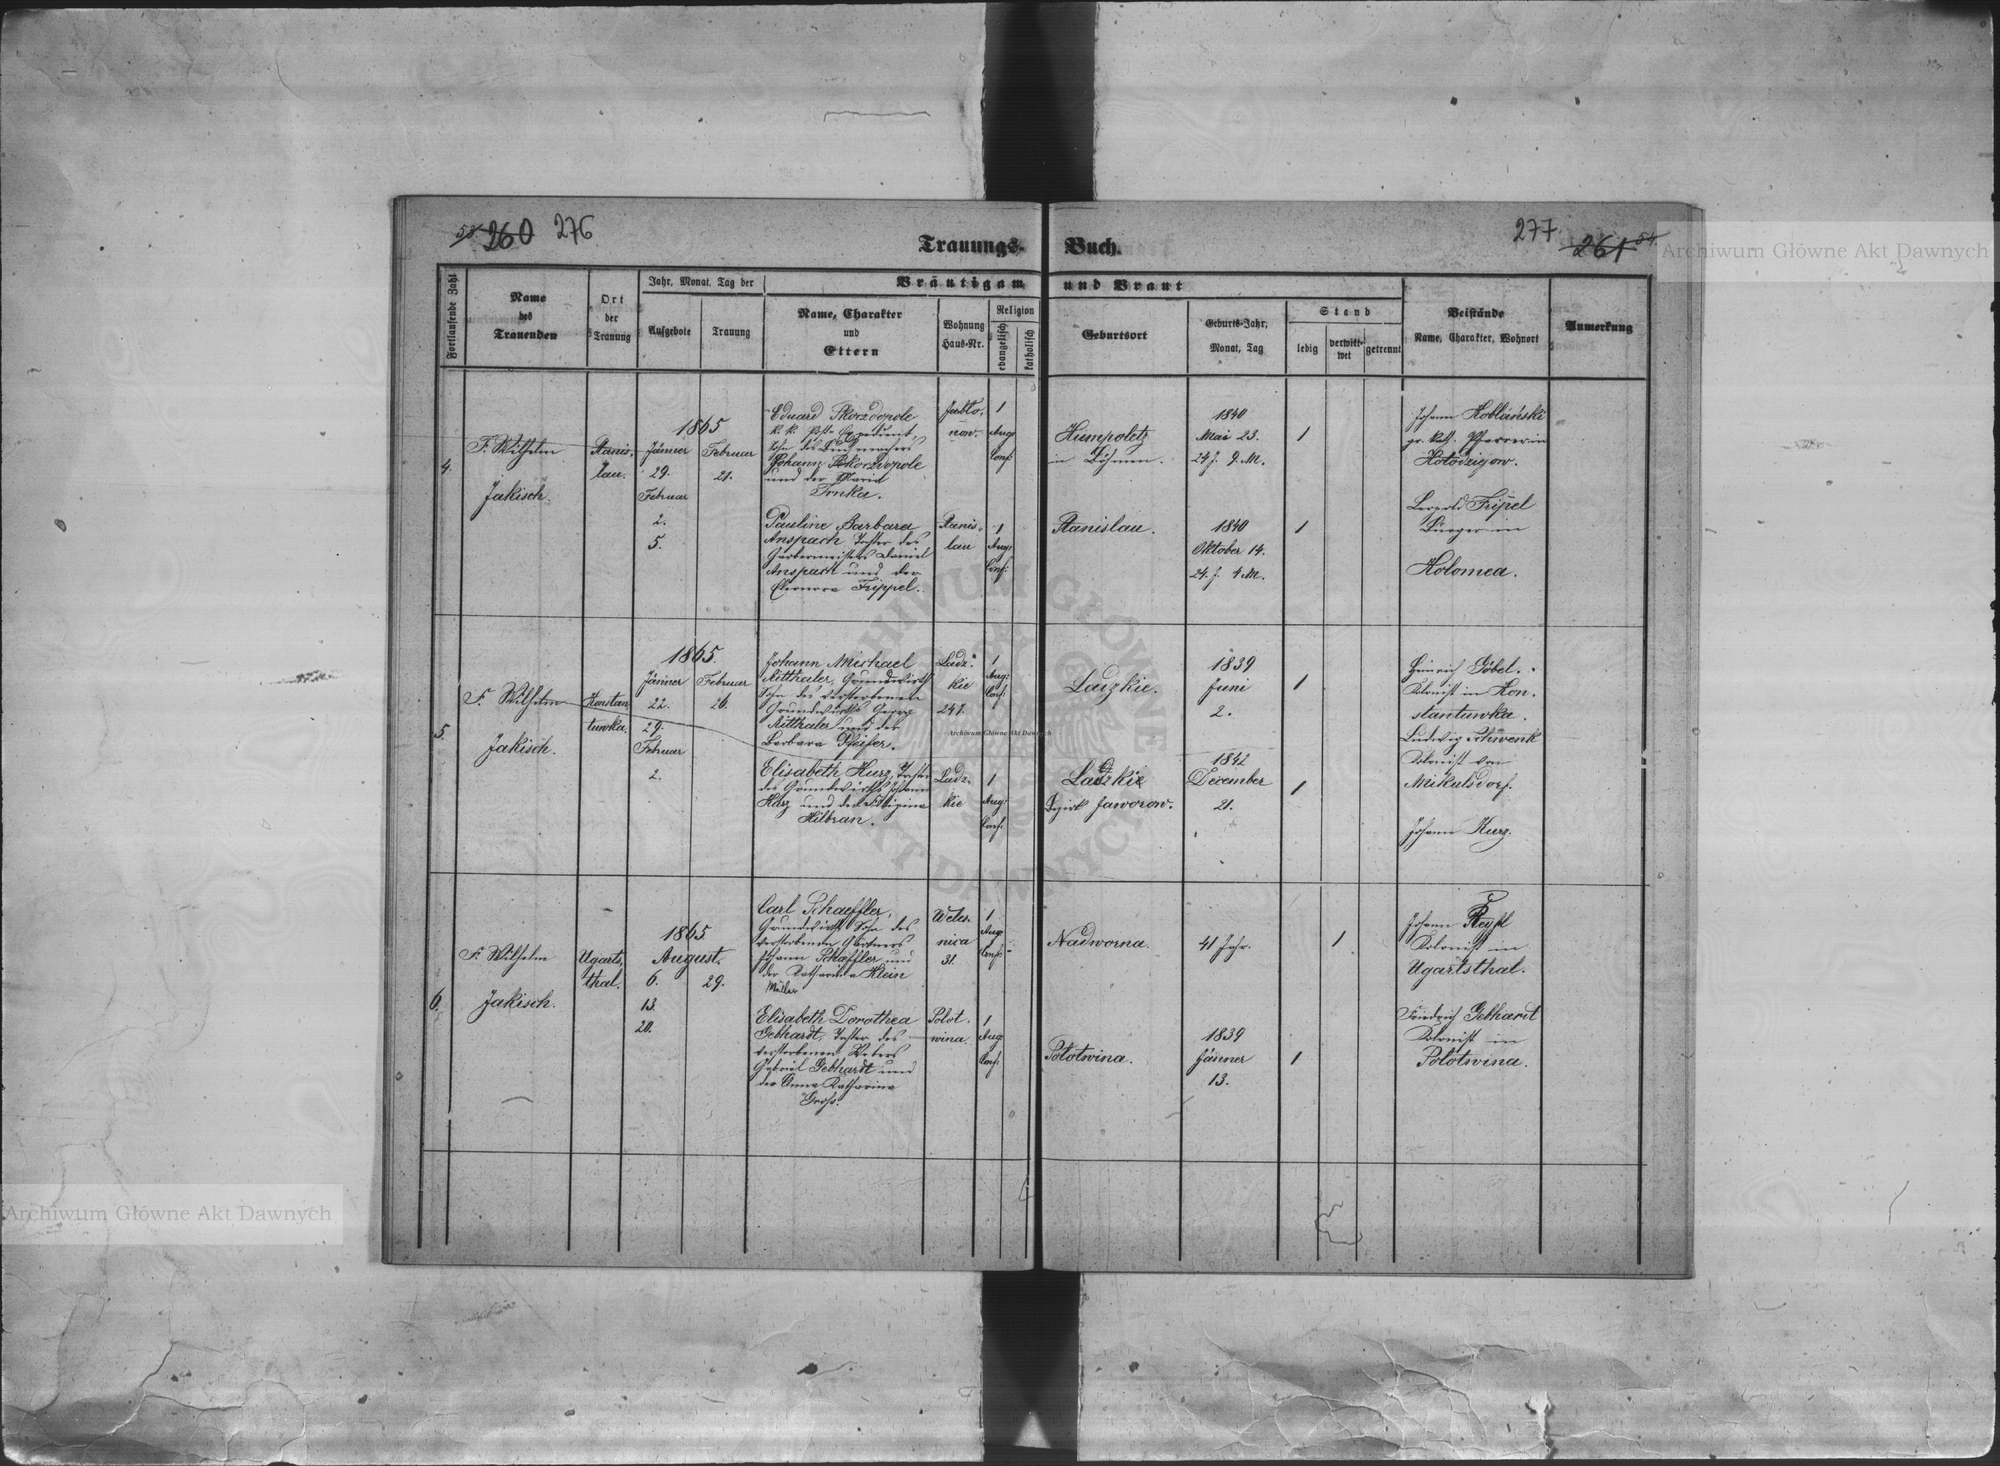 53. 260 276
277. 261 54.
Trauungs-Buch.
Fortlaufende Zahl
Name
des
Trauenden
Ort
der
Trauung
Jahr, Monat, Tag der
Aufgebote
Trauung
Bräutigam und Braut
Name, Charakter
und
Eltern
Wohnung
Haus-Nr.
Religion
evangelisch
katholisch
Geburtsort
Geburts-Jahr,
Monat, Tag
Stand
ledig
verwitt-
wet
getrennt
Beistände
Name, Charakter, Wohnort
Anmerkung
4.
F. Wilhelm
Jakisch.
Stanis-
lau.
1865
Jänner
29.
Februar
2.
5.
Februar
21.
Eduard Skorzdopole
k. k. Post-Expedient,
Sohn des
Johann Skorzdopole
und der Maria
Trnka.
Jablo-
now.
1
Aug:
Conf:
Humpoletz
in Böhmen.
1840
Mai 23.
24 J. 9. M.
1
Johann Koblański
gr. kath. Pfarrer in
Kołodziejow.
Pauline Barbara
Anspach, Tochter des
Gärbermeisters Daniel
Anspach und der
Eleonora Frippel.
Stanis-
lau
1
Aug:
Conf:
Stanislau.
1840
Oktober 14.
24. J. 4 M.
1
Leopold Frippel
Bürger in
Kolomea.
5.
F. Wilhelm
Jakisch.
Konstan
tuwka.
1865.
Jänner
22.
29.
Februar
2.
Februar
26.
Johann Michael
Ritthaler, Grundwirth
Sohn des verstorbenen
Grundwirths Georg
Ritthaler und der
Barbara Pfeifer.
Ladz-
kie
247.
1
Aug:
Conf:
Ladzkie.
1839
Juni
2.
1
Heinrich Göbel.
Kolonist in Kon-
stantuwka.
Ludwig Schwenk
Kolonist von
Mikulsdorf.
Elisabeth Kurz, Tochter
des Grundwirths Johann
Kurz und der
Hilbran.
Ladz-
kie
1
Aug:
Conf:
Ladzkie
Bezirk Jaworow.
1842
December
21.
1
Johann Kurz.
6.
F. Wilhelm
Jakisch.
Ugarts-
thal.
1865
August.
6.
13.
20.
29.
Carl Schaeffler,
Grundwirth Sohn des
verstorbenen Gärtners
Johann Schaeffler und
der Katharina Klein
Müller
Weles-
nica
31.
1
Aug:
Conf:
Nadworna.
41 Jahr.
1
Johann
Kolonist in
Ugartsthal.
Elisabeth Dorothea
Gebhardt, Tochter des
verstorbenen Webers
Gabriel Gebhardt und
der Anna Katharina
Groß.
Polot-
wina.
1
Aug:
Conf:
Polotwina.
1839
Jänner
13.
1
Friedrich Gebhardt
Kolonist in
Polotwina.
Archiwum Główne Akt Dawnych
Archiwum Główne Akt Dawnych
Archiwum Główne Akt Dawnych